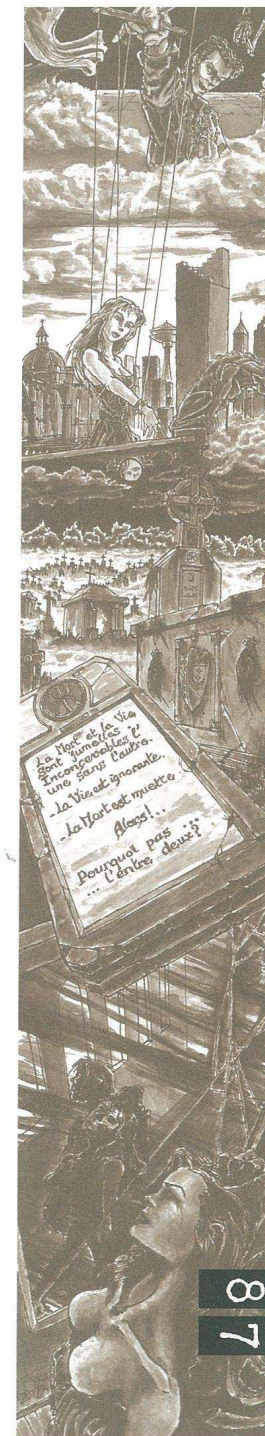 La Mort et la Vie
Sont Jumelles
Inconsevables l'
une sans l'autre.
- La Vie est ignorante.
- La Mort est muette.
Alors!...
Pourquoi pas ...
... l'entre deux?
87